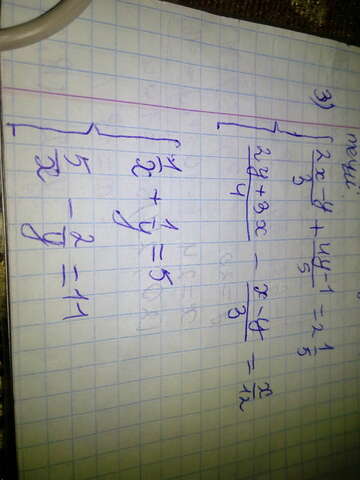 3)
(2x-y)/3 + (4y-1)/5 = 2 1/5
(2y+3x)/4 - (x-y)/3 = x/12
1/x + 1/y = 5
5/x - 2/y = 11